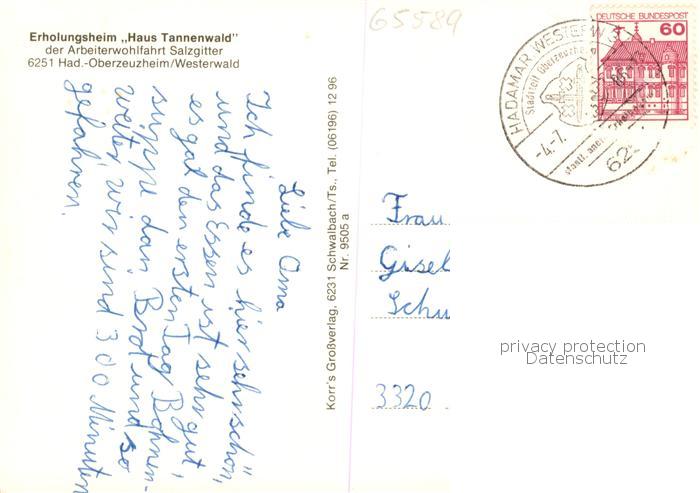 Erholungsheim „Haus Tannenwald"
der Arbeiterwohlfahrt Salzgitter
6251 Had.-Oberzeuzheim/Westerwald
Liebe Oma
Ich finde es hier sehr schön,
und das Essen ist sehr gut,
es gab den ersten Tag Bohnen-
suppe dan Brot und so
weiter wir sind 300 Minuten
gefahren.
Korr's Großverlag, 6231 Schwalbach/Ts., Tel. (06196) 12 96
Nr. 9505 a
65589
DEUTSCHE BUNDESPOST
60
HADAMAR, WESTERW 3
Stadtteil Oberzeuzheim
staatl. aner
-4.-7.
62
Frau
Gisel
Schu
3320
privacy protection
Datenschutz